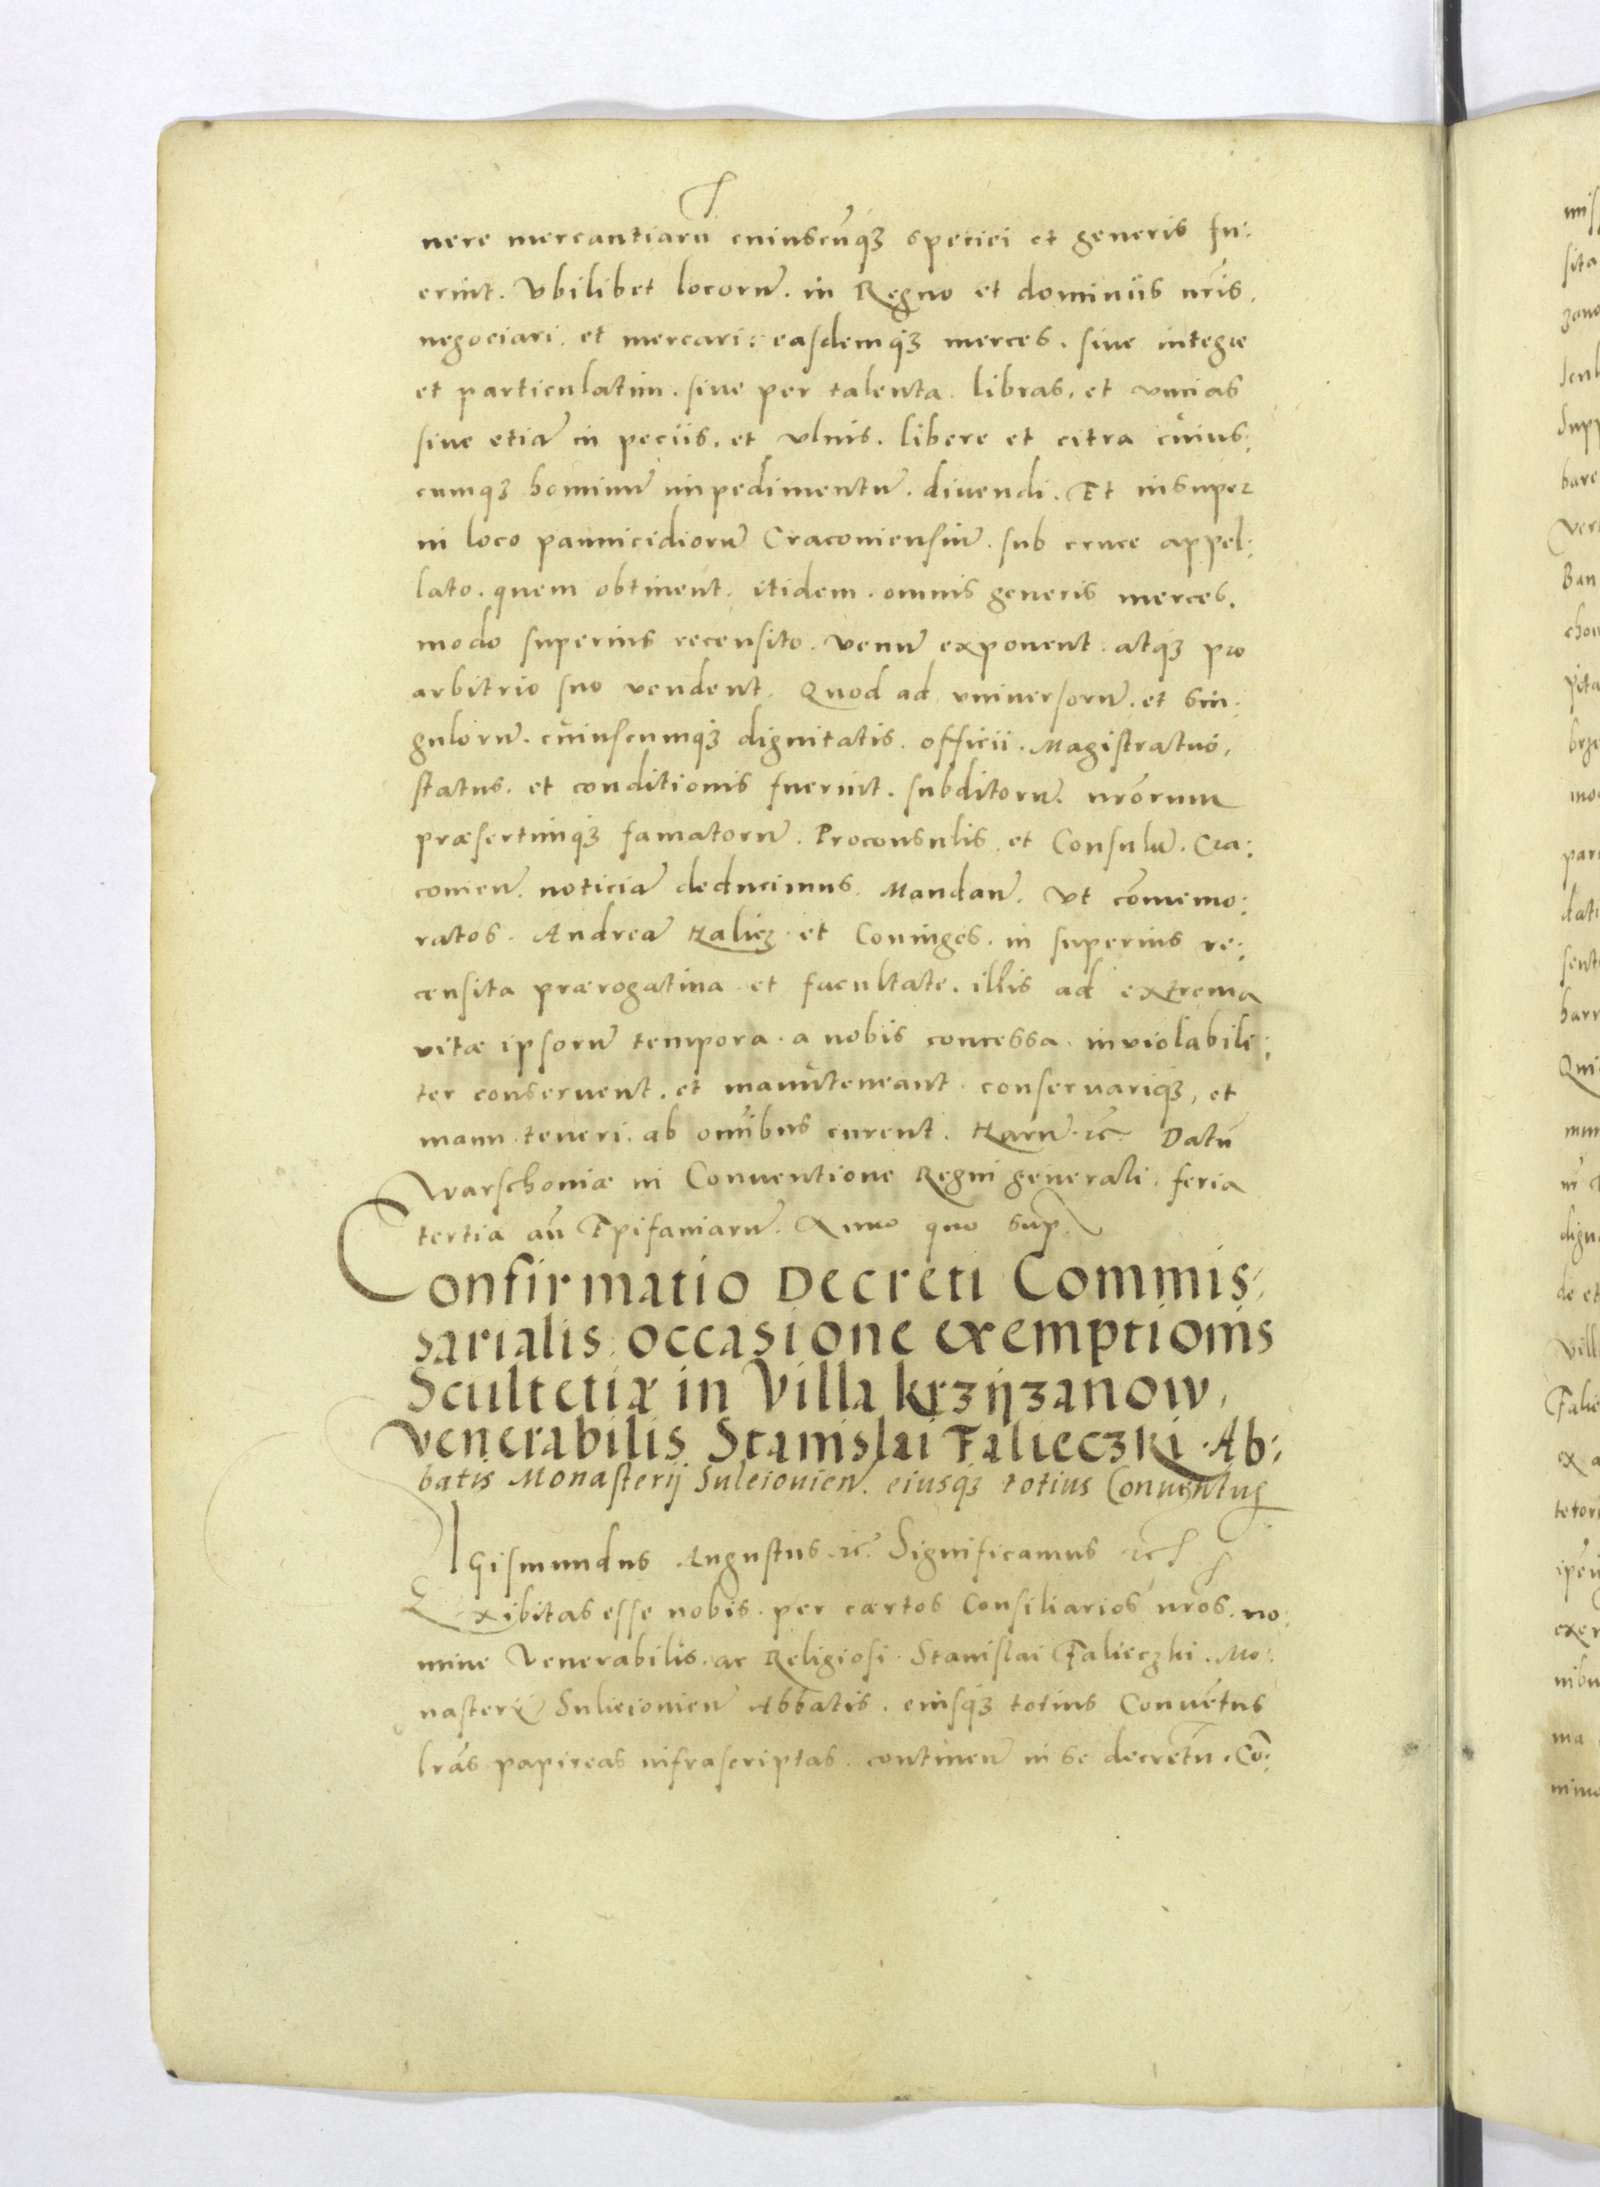 nere mercantiarū cuiuscūqȝ speciei et generis fu:
erint. Vbilibet locorū. in Regno et dominiis nr̄is.
negociari. et mercari: easdemqȝ merces. siue integre
et particulatim. siue per talenta. libras. et vncias
siue etiā in peciis. et vlnis. libere et citra cuius:
cumqȝ hominū impedimentū. diuendi. Et insuper
in loco pannicidiorū Cracouiensiū. sub cruce appel:
lato. quem obtinent. itidem. omnis generis merces.
modo superius recensito. venū exponent. atqȝ pro
arbitrio suo vendent. Quod ad vniuersorū. et sin:
gulorū. cuiuscumqȝ dignitatis. officii. Magistratus,
status. et conditionis fuerint. subditorū. nr̄orum
præsertimqȝ famatorū. Proconsulis. et Consulū. Cra:
couien̄. noticiā deducimus. Mandan̄. vt cōmemo:
ratos. Andreā Halicz. et Coninges. in superius re:
censita prærogatiua. et facultate. illis ad extrema
vitæ ipsorū tempora. a nobis concessa. inuiolabili:
ter conseruent. et manuteneant. conseruariqȝ, et
manu. teneri. ab omībus curent. Harū. ꝛc̄. Datū
Warschouiæ in Conuentione Regni generali. feria
tertia an̄ Epifaniarū. Anno quo sup.
Confirmatio Decreti Commis:
sarialis. occasione exemptionis
Scultetiæ in Villa krzÿzanow,
Venerabilis Stanislai Falieczki. Ab:
batis Monasterÿ Suleiouien̄. eiusqȝ totius Conuentus
Igismundus Augustus. ꝛc̄. Significamus ꝛc̄
Exibitas esse nobis. per cærtos Consiliarios nr̄os. no:
mine Venerabilis. ac Religiosi. Stanislai Falieczki. Mo:
nasterÿ Sulieiouien̄ Abbatis. eiusqȝ totius Conuētus
lr̄as papireas infrascriptas. continen̄ in se decretū. Cō: